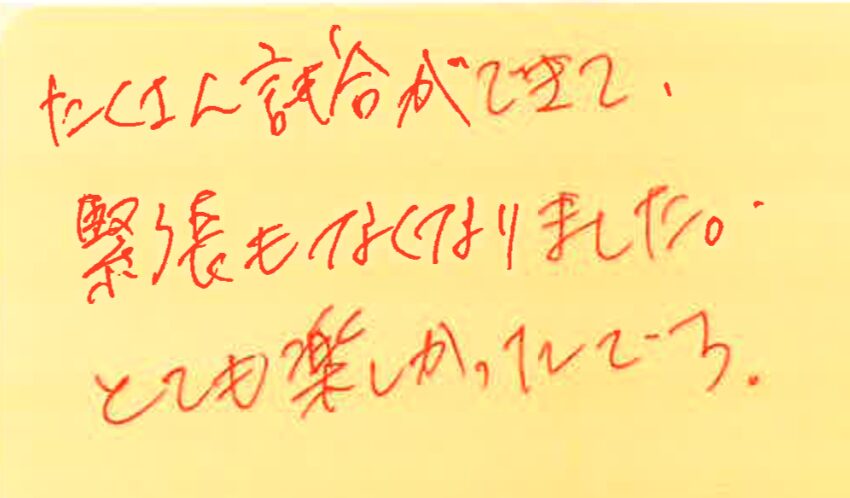 たくさん試合ができて、
緊張もなくなりました。
とても楽しかったです。